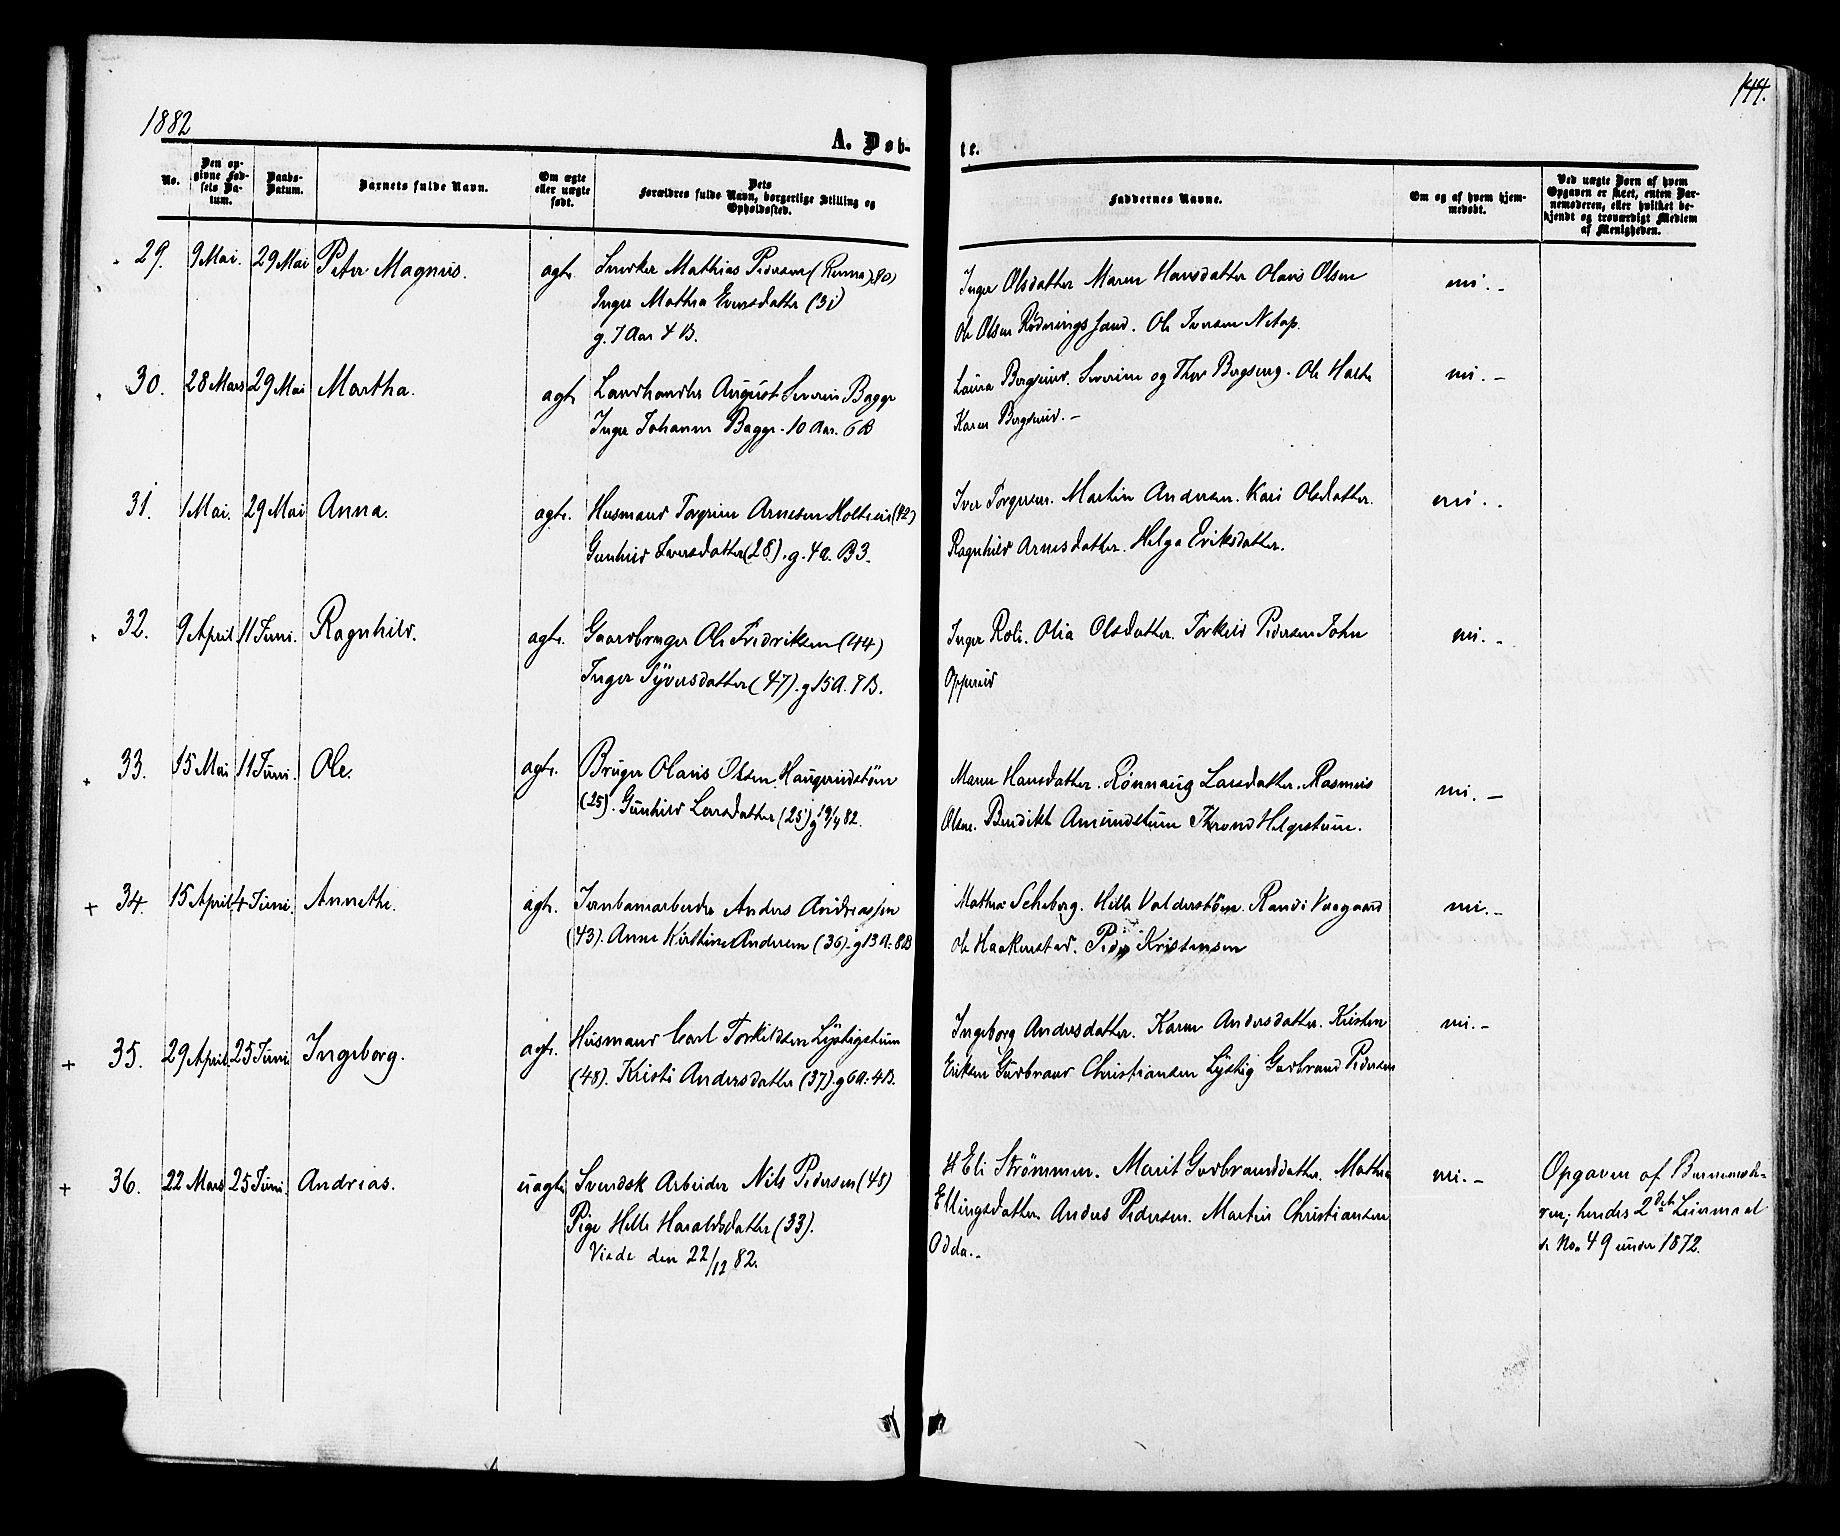 1882
144.
A. Døb-
te.
No.
Den op-
givne Fød-
sels Da-
tum.
Daabs-
Datum.
Barnets fulde Navn.
Om ægte
eller uægte
født.
Dets
Forældres fulde Navn, borgerlige Stilling og
Opholdssted.
Faddernes Navne.
Om og af hvem hjem-
medøbt.
Ved uægte Børn af hvem
Opgaven er skeet, enten Bar-
nemoderen, eller hvilket be-
kjendt og troværdigt Medlem
af Menigheden.
29. 9 Mai. 29 Mai Peter Magnus. ægte Snerker Mathias Pedersen (Renna) 30)
Inger Mathea Eversdatter (31)
g. 7 Aar 4 B.
Inger Olsdatter Maren Hansdatter Olavis Olsen ni. -
Ole Olsen Rødningssand. Ole Iversen
30. 28 Mars 29 Mai Martha. ægte Landhandler August Severin Bagge
Inger Johanne Bagge. 10 Aar. 6 B
Laura Bergsund. Severine og Thor Bergseng. Ole Halte ni. -
Karen Bergsund. -
31. 1 Mai. 29 Mai Anna. ægte. Husmand Torgrim Arnesen Holteeie (42)
Gunhild Iversdatter (28). g. 4 a. B 3.
Iver Torgersen. Martin Andersen. Kari Olsdatter. ni. -
Ragnhild Arnesdatter. Helga Eriksdatter.
32. 9 April. 11 Juni. Ragnhild. ægte. Gaardbruger Ole Fredriksen (44)
Inger Syversdatter (47). g 15 A. 7 B.
Inger Roli. Olia Olsdatter. Torkild Pedersen John ni. -
Opperud
33. 15 Mai 11 Juni. Ole. ægte. Bruger Olavis Olsen Haugerudstøen
(25). Gunhild Larsdatter (25) g 19/4 82.
Maren Hansdatter. Rønnaug Larsdatter. Rasmus ni. -
Olsen. Bendikt Amundstuen Thrond Helgestuen.
34. 15 April. 4 Juni. Annethe. ægte. Jernbanearbeider Anders Andreassen
(43). Anne Kirstine Andersen (36). g 13 A. 8 B
Mathea Scheberg. Helle Valderstøen. Randi Vaagaard ni. -
Ole Haakenstad. Peder Kristensen
35. 29 April. 25 Juni Ingeborg. ægte. Husmand Carl Torkildsen Lystigstuen
(48). Kristi Andersdatter (37). g 6 A. 4 B.
Ingeborg Andersdatter. Karen Andersdatter. Kristen ni. -
Eriksen Gudbrand Christiansen Lystig Gudbrand Pedersen
36. 22 Mars 25 Juni. Andreas. uægte Svensk Arbeider Nils Pedersen (45)
Pige Helle Haraldsdatter (33).
Viede den 22/12 82.
Eli Strømmen. Marit Gudbrandsdatter. Mathea ni. -
Ellingsdatter Anders Pedersen. Martin Christiansen
Odda. -
Opgaven af Barnemode-
ren; hendes 2det Leiermaal
se No. 49 under 1872.